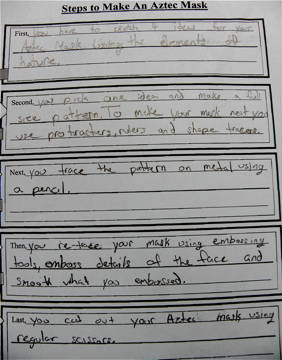 Steps to Make An Aztec Mask
First, you have to sketch 4 ideas for your
Aztec Mask using the elements of
nature.
Second, you pick one idea and make a full
size pattern. To make your mask next you
use protracters, rulers and shape tracers
Next, you trace the pattern on metal using
a pencil.
Then, you re-trace your mask using embossing
tools, emboss details of the face and
smooth what you embossed.
Last, you cut out your Aztec mask using
regular scissors.